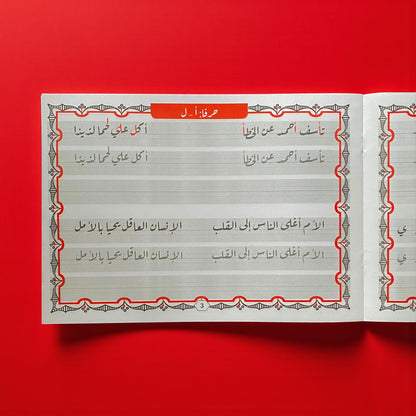 حرفا: أ - ل
تأسف أحمد عن الخطأ أكل علي لحما لذيذا
تأسف أحمد عن الخطأ أكل علي لحما لذيذا
الأم أغلى الناس إلى القلب الإنسان العاقل يحيا بالأمل
الأم أغلى الناس إلى القلب الإنسان العاقل يحيا بالأمل
3